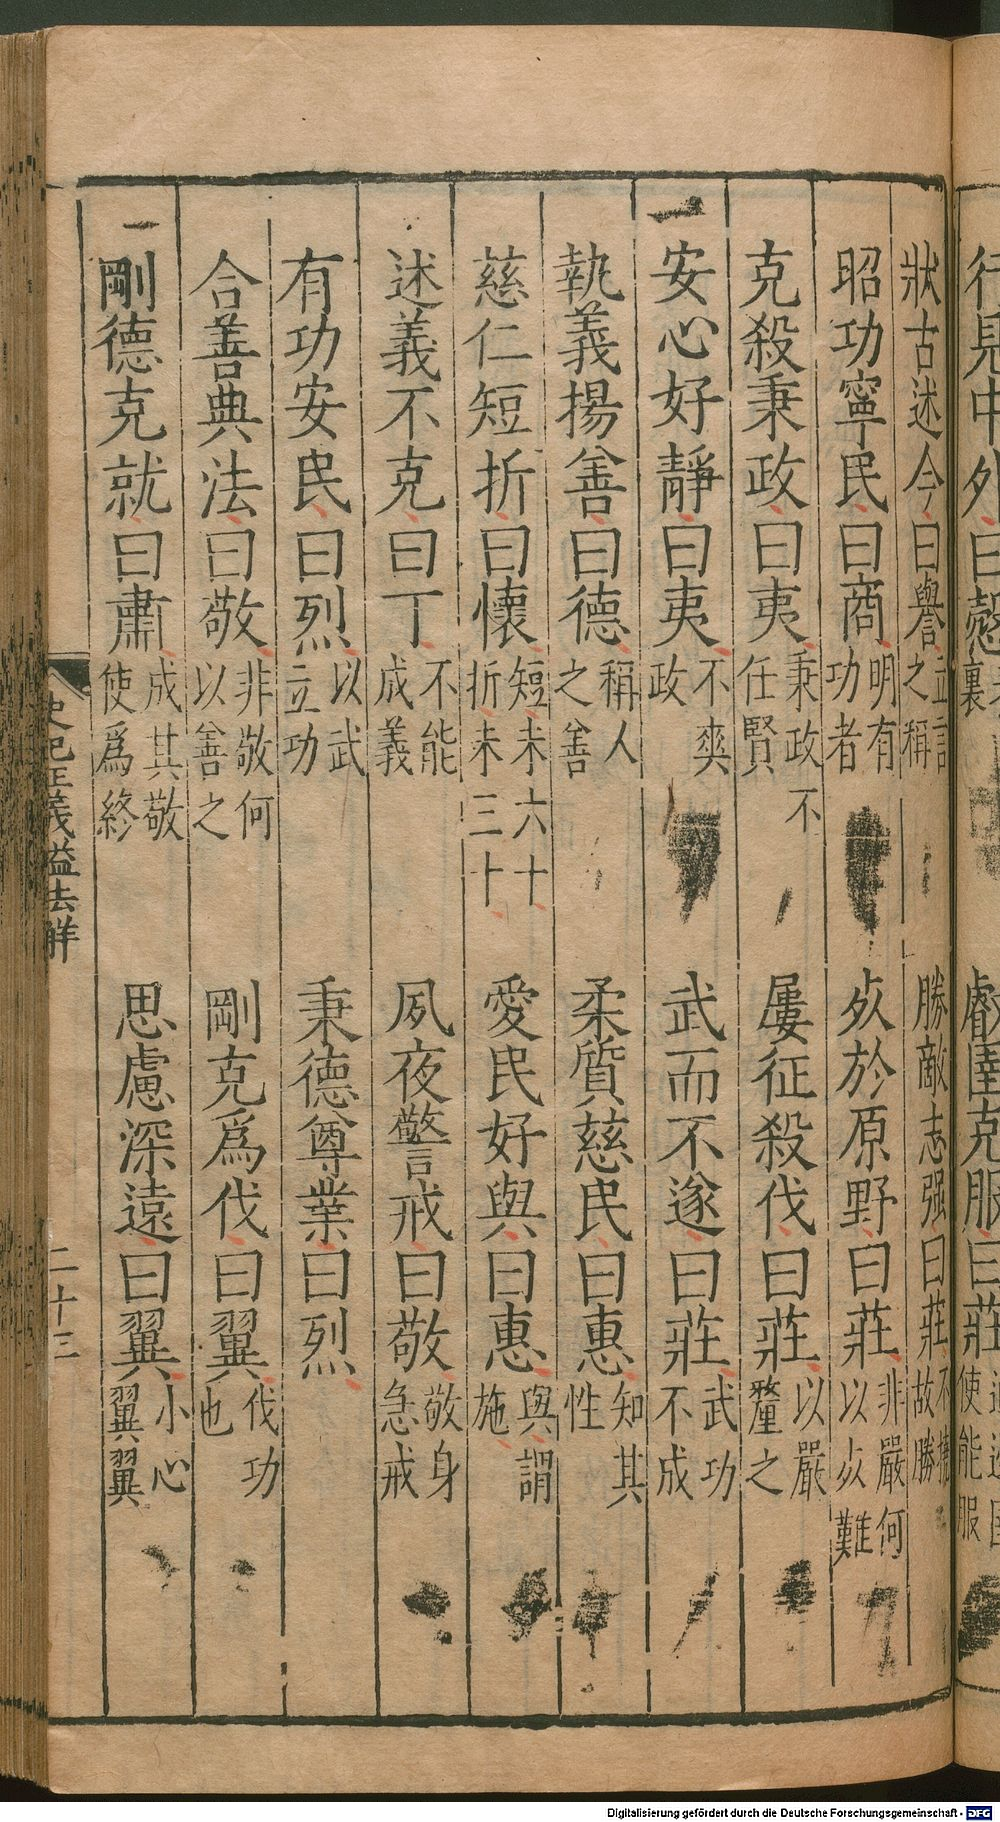 行見中外曰愨
叡圉克服曰莊
狀古述今曰譽立言之稱
勝敵志强曰莊不撓故勝
昭功寧民曰商明有功者
㱙於原野曰莊非嚴何以㱙難
克殺秉政曰夷秉政不任賢
屢征殺伐曰莊以嚴釐之
安心好靜曰夷不爽政
武而不遂曰莊武功不成
執義揚善曰德稱人之善
柔質慈民曰惠知其性
慈仁短折曰懷短未六十折未三十
愛民好與曰惠與謂施
述義不克曰丁不能成義
夙夜警戒曰敬敬身急戒
有功安民曰烈以武立功
秉德尊業曰烈
合善典法曰敬非敬何以善之
剛克爲伐曰翼伐功也
剛德克就曰肅成其敬使爲終
思慮深遠曰翼小心翼翼
史記正義謚法解
二十三
Digitalisierung gefördert durch die Deutsche Forschungsgemeinschaft - DFG